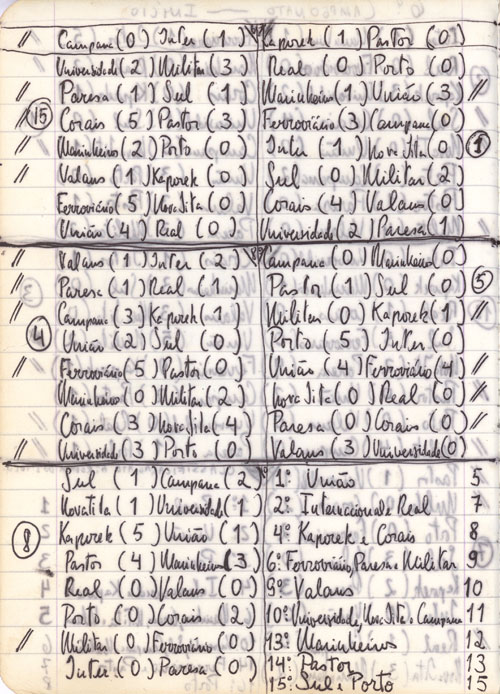 Campana (0) Inter (1)
Universidade (2) Militar (3)
Paresa (1) Sul (1)
15 Corais (5) Pastor (3)
Marinheiros (2) Porto (0)
Valaus (1) Kaporek (0)
Ferroviário (5) Nova Jita (0)
União (4) Real (0)
Kaporek (1) Pastor (0)
Real (0) Porto (0)
Marinheiros (1) União (3)
Ferroviário (3) Campana (0)
Inter (1) Nova Jita (0) 1
Sul (0) Militar (2)
Corais (4) Valaus (0)
Universidade (2) Paresa (1)
Valaus (1) Inter (2)
Paresa (1) Real (1)
Campana (3) Kaporek (1)
4 União (2) Sul (0)
Ferroviário (5) Pastor (0)
Marinheiros (0) Militar (2)
Corais (3) Nova Jita (4)
Universidade (3) Porto (0)
Campana (0) Marinheiros (0)
Pastor (1) Sul (0) 5
Militar (0) Kaporek (1)
Porto (5) Inter (0)
União (4) Ferroviário (4)
Nova Jita (0) Real (0)
Paresa (0) Corais (0)
Valaus (3) Universidade (0)
Sul (1) Campana (2)
Nova Jita (1) Universidade (1)
8 Kaporek (5) União (1)
Pastor (4) Marinheiros (3)
Real (0) Valaus (0)
Porto (0) Corais (2)
Militar (0) Ferroviário (0)
Inter (0) Paresa (0)
1º União 5
2º Internacional e Real 7
4º Kaporek e Corais 8
6º Ferroviário, Paresa e Militar 9
9º Valaus 10
10º Universidade, Nova Jita e Campana 11
13º Marinheiros 12
14º Pastor 13
15º Sul e Porto 15